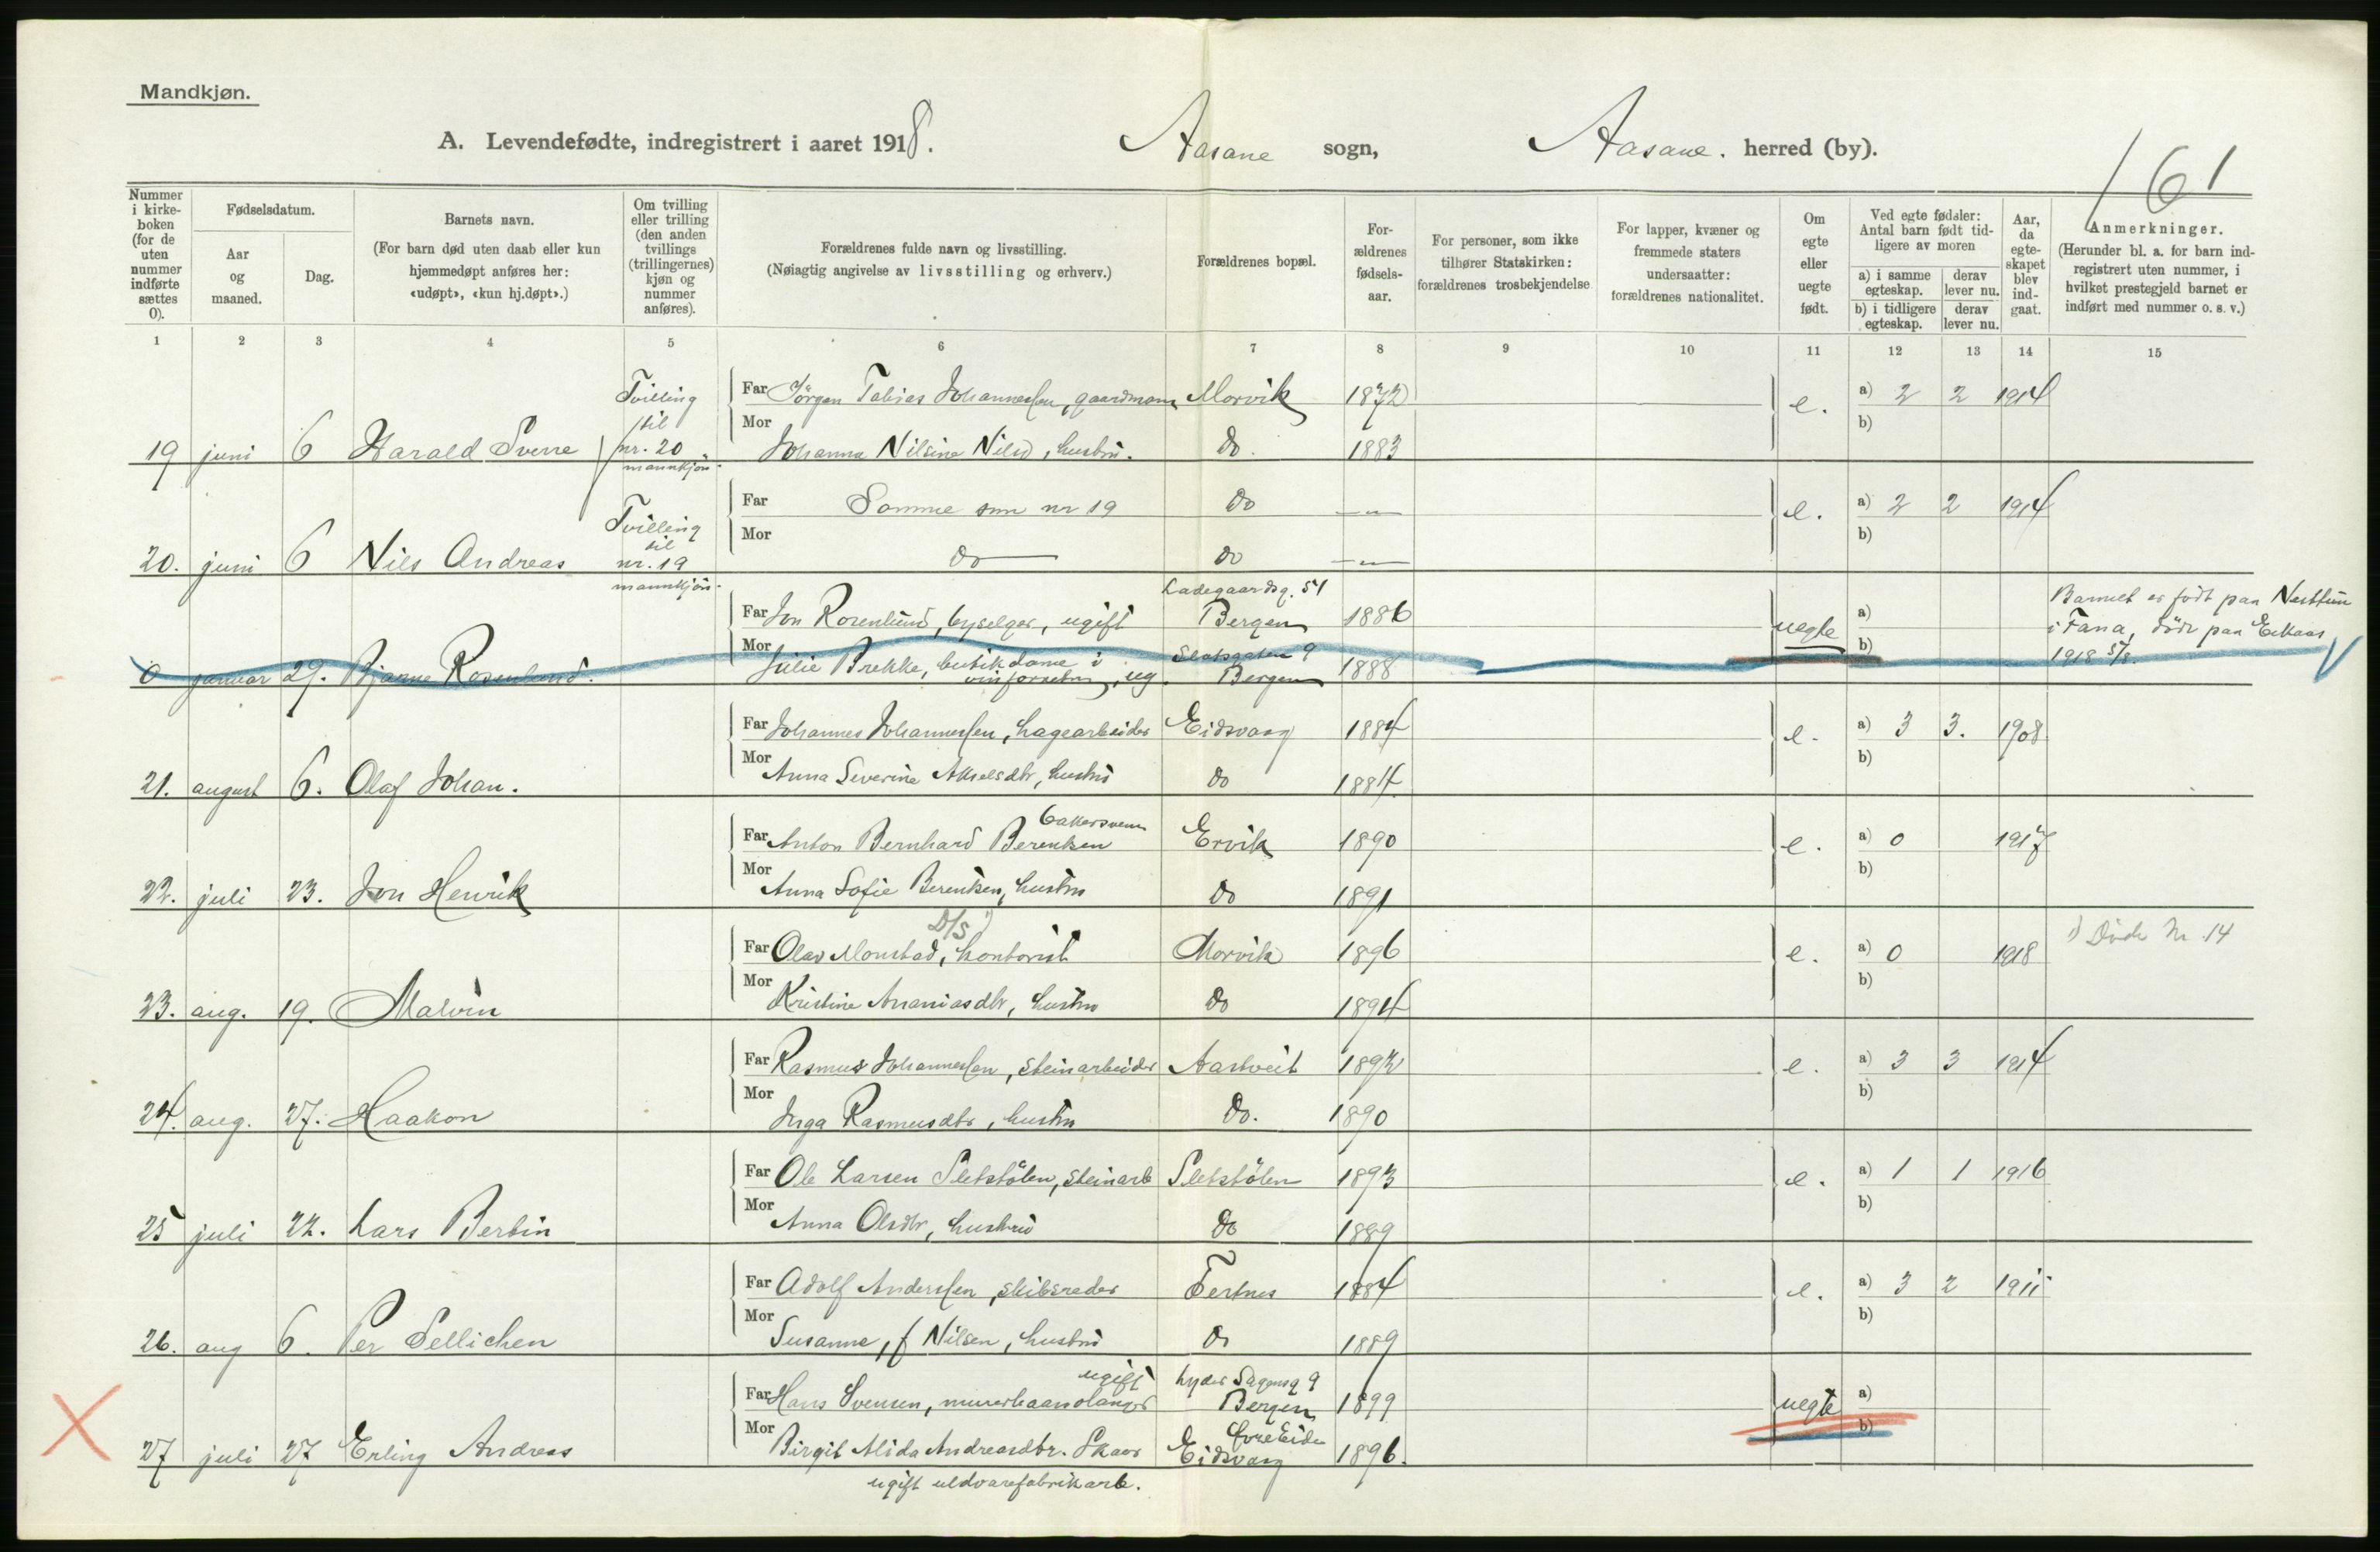 Mandkjøn.
A. Levendefødte, indregistrert i aaret 1918. Aasane sogn, Aasane. herred (by).
161
Nummer i kirkeboken (for de uten nummer indførte sættes 0).
Fødselsdatum.
Aar og maaned.
Dag.
Barnets navn.
(For barn død uten daab eller kun hjemmedøpt anføres her: «udøpt», «kun hj.døpt».)
Om tvilling eller trilling (den anden tvillings (trillingernes) kjøn og nummer anføres).
Forældrenes fulde navn og livsstilling.
(Nøiagtig angivelse av livsstilling og erhverv.)
Forældrenes bopæl.
Forældrenes fødselsaar.
For personer, som ikke tilhører Statskirken: forældrenes trosbekjendelse
For lapper, kvæner og fremmede staters undersaatter: forældrenes nationalitet.
Om egte eller uegte født.
Ved egte fødsler: Antal barn født tidligere av moren
a) i samme egteskap. derav lever nu.
b) i tidligere egteskap. derav lever nu.
Aar, da egteskapet blev indgaat.
Anmerkninger.
(Herunder bl. a. for barn indregistrert uten nummer, i hvilket prestegjeld barnet er indført med nummer o. s. v.)
1 2 3 4 5 6 7 8 9 10 11 12 13 14 15
Tvilling til nr. 20 mannkjön.
Far Jörgen Tobias Johannessen, gaardmann Morvik 1872 e. a) 2 2 1914
19 juni 6 Harald Sverre
Mor Johanna Nilsine Nilsd, hustru. do. 1883 b)
Tvilling til nr. 19 mannkjön.
Far Samme som nr 19 do —"— e. a) 2 2 1914
20. juni 6 Nils Andreas
Mor do do —"— b)
Ladegaardsg. 51
Far Jon Rosenlund, byselger, ugift Bergen 1886 uegte a)
Barnet er født paa Nesttun
i Fana, döde paa Eikaas
1918 5/8.
0 januar 29. Bjarne Rosenlund.
Mor Julie Brekke, butikdame i vinforretn, ug. Slotsgaten 9 Bergen 1888 b)
Far Johannes Johannessen, hagearbeider Eidsvaag 1884 e. a) 3 3. 1908
21. august 6. Olaf Johan.
Mor Anna Severine Akselsdtr, hustru do 1884 b)
Far Anton Bernhard Berentsen bakersvenn Ervik 1890 e. a) 0 1917
22. juli 23. Jon Henrik
Mor Anna Sofie Berentsen, hustru do 1891 b)
D/S 1)
Far Olav Monstad, kontorist Morvik 1896 e. a) 0 1918 1) Døde Nr. 14
23. aug. 19. Malvin
Mor Kristine Ananiasdtr, hustru do 1894 b)
Far Rasmus Johannessen, steinarbeider Aastveit 1892 e. a) 3 3 1914
24. aug. 27. Haakon
Mor Inga Rasmusdtr, hustru do. 1890 b)
Far Ole Larsen Sletstölen, steinarb Sletstölen 1893 e. a) 1 1 1916
25 juli 22. Lars Bertin
Mor Anna Olsdtr, hustru do 1889 b)
Far Adolf Anderssen, skibsreder Tertnes 1884 e. a) 3 2 1911
26. aug 6. Per Sellichen
Mor Susanne, f Nilsen, hustru do 1889 b)
ugift Lyder Sagensg 9
Far Hans Svensen, murerhaandlanger Bergen 1899 uegte a)
27 juli 27 Erling Andreas
Mor Birgit Alida Andreasdtr. Skaar Eidsvaag 1896. b)
ugift uldvarefabrikarb.